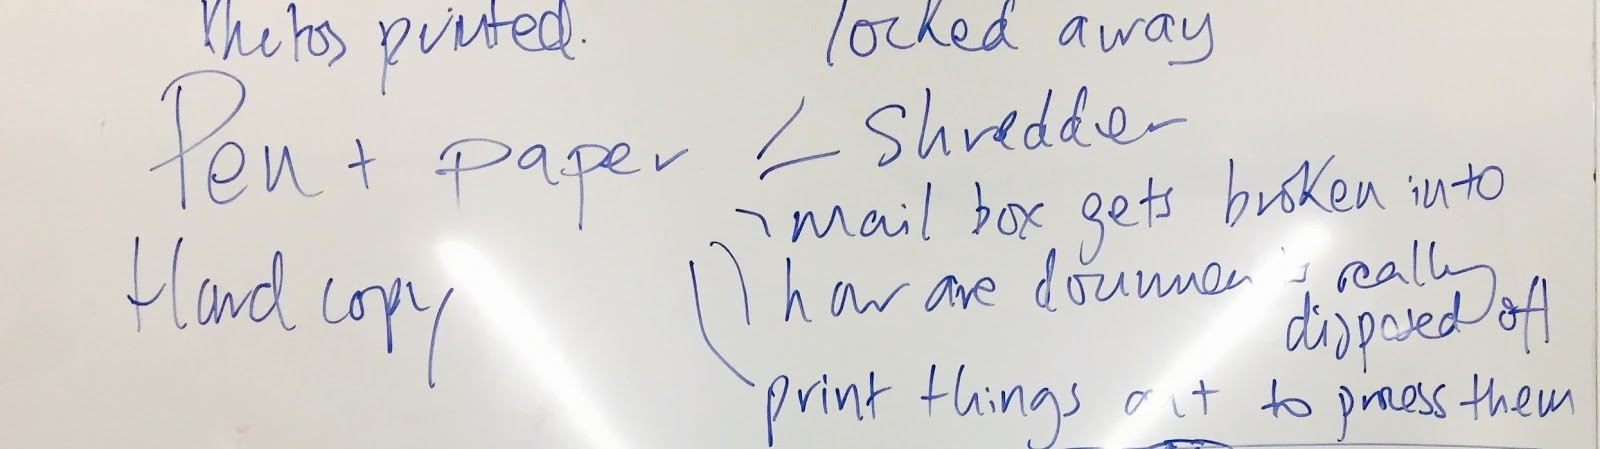 Photos printed.
locked away
Pen + paper
Shredder
mail box gets broken into
Hard copy
how are documents really
disposed off
print things out to process them